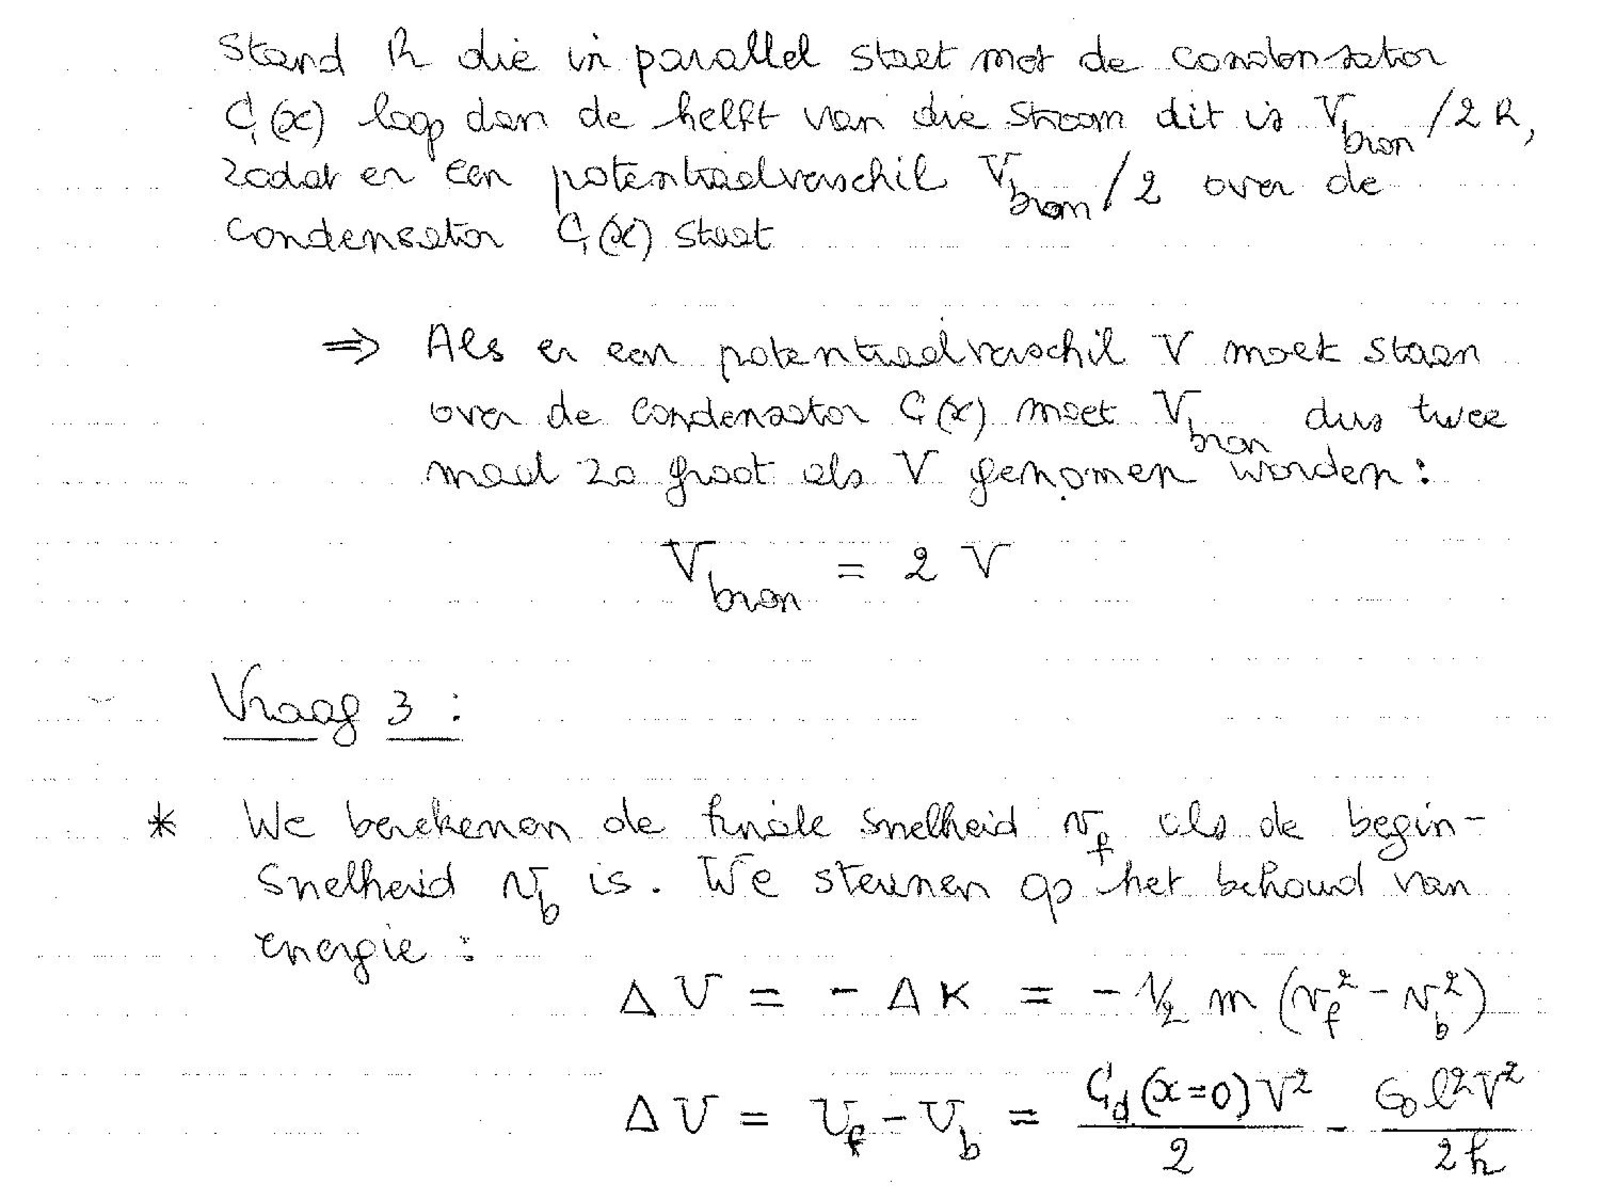 stand R die in parallel staat met de condensator
C₁(x) loop dan de helft van die stroom dit is V_bron/2R,
zodat er een potentiaalverschil V_bron/2 over de
condensator C₁(x) staat
⇒ Als er een potentiaalverschil V moet staan
over de condensator C₁(x) moet V_bron dus twee
maal zo groot als V genomen worden:
V_bron = 2 V
Vraag 3 :
* We berekenen de finale snelheid v_f als de begin-
snelheid v_b is. We steunen op het behoud van
energie :
Δ U = - Δ K = - 1/2 m (v_f² - v_b²)
Δ U = U_f - U_b = C_d(x=0)V²/2 - ε₀ l² V²/2h